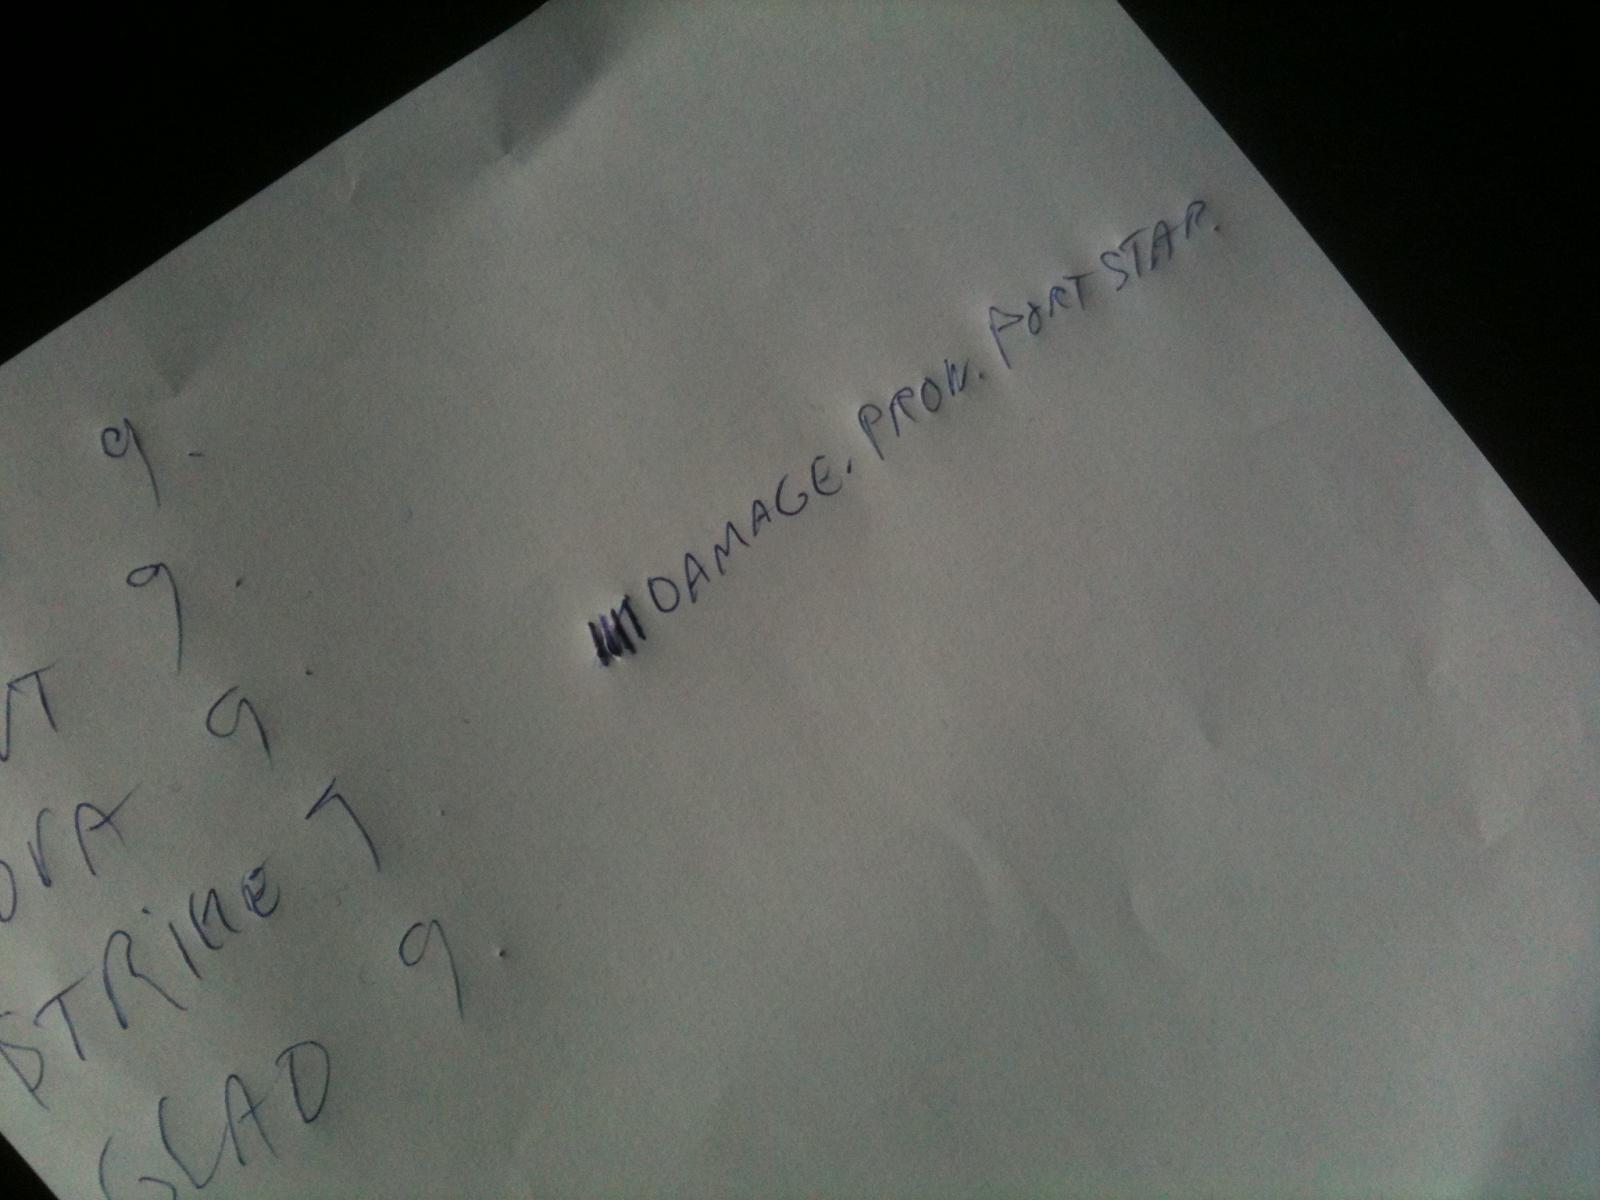 9.
9.
9.
STRIKE 9.
GLAD 9.
DAMAGE. PROW. PORT STAR.